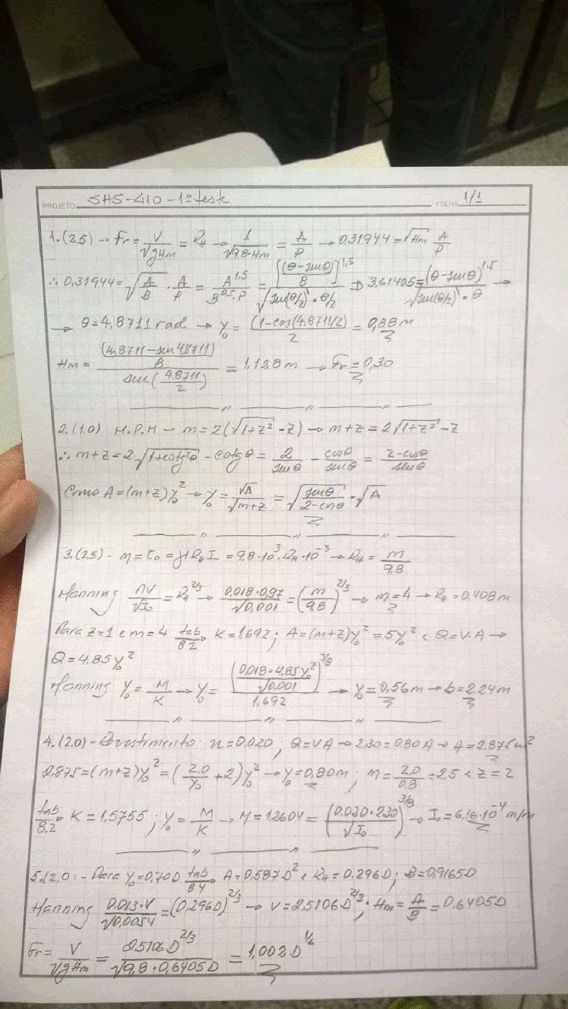 PROJETO SHS-410-1º teste FOLHA 1/1
1.(2.5) → Fr = V/√(gHm) = RH → 1/√(9,8·Hm) = A/P → 0,31944 = √Hm A/P
∴ 0,31944 = √(A/B) · A/P = A^1,5/(B^0,5·P) = [(θ-senθ)/8]^1,5/(√(sen(θ/2))·θ/2) ⇒ 3,61405 = (θ-senθ)^1,5/(√(sen(θ/2))·θ) →
→ θ = 4,8711 rad → y₀ = (1-cos(4,8711/2))/2 = 0,88 m
Hm = ((4,8711-sen4,8711)/8)/sen(4,8711/2) = 1,128 m → Fr = 0,30
2.(1.0) M.P.H → m = 2(√(1+z²) - z) → m+z = 2√(1+z²) - z
∴ m+z = 2√(1+cotg²θ) - cotgθ = 2/senθ - cosθ/senθ = (2-cosθ)/senθ
Como A = (m+z)y₀² → y₀ = √A/√(m+z) = √(senθ/(2-cosθ)) · √A
3.(2.5) - m = τ₀ = γ RH I₀ = 9,8·10³·RH·10⁻³ → RH = m/9,8
Manning nV/√I₀ = RH^2/3 → 0,018·0,97/√0,001 = (m/9,8)^2/3 → m = 4 → RH = 0,408 m
Para z=1 e m=4 tab 8.2 K = 1,692; A = (m+z)y₀² = 5y₀² e Q = V.A →
Q = 4,85y₀²
Manning y₀ = M/K → y₀ = (0,018·4,85y₀²/√0,001)^3/8/1,692 → y₀ = 0,56 m → b = 2,24 m
4.(2.0) - Revestimento: n = 0,020; Q = VA → 2,30 = 0,80A → A = 2,875 m²
2,875 = (m+z)y₀² = (2,0/y₀ + 2)y₀² → y₀ = 0,80 m; m = 2,0/0,8 = 2,5 e z = 2
tab 8.2 K = 1,5755; y₀ = M/K → M = 1,2604 = (0,020·2,30/√I₀)^3/8 → I₀ = 6,16·10⁻⁴ m/m
5.(2.0) - Para y₀ = 0,70D tab 8.4 A = 0,587D² e RH = 0,296D; B = 0,9165D
Manning 0,013·V/√0,0054 = (0,296D)^2/3 → V = 2,5106D^2/3; Hm = A/B = 0,6405D
Fr = V/√(gHm) = 2,5106D^2/3/√(9,8·0,6405D) = 1,002D^1/6